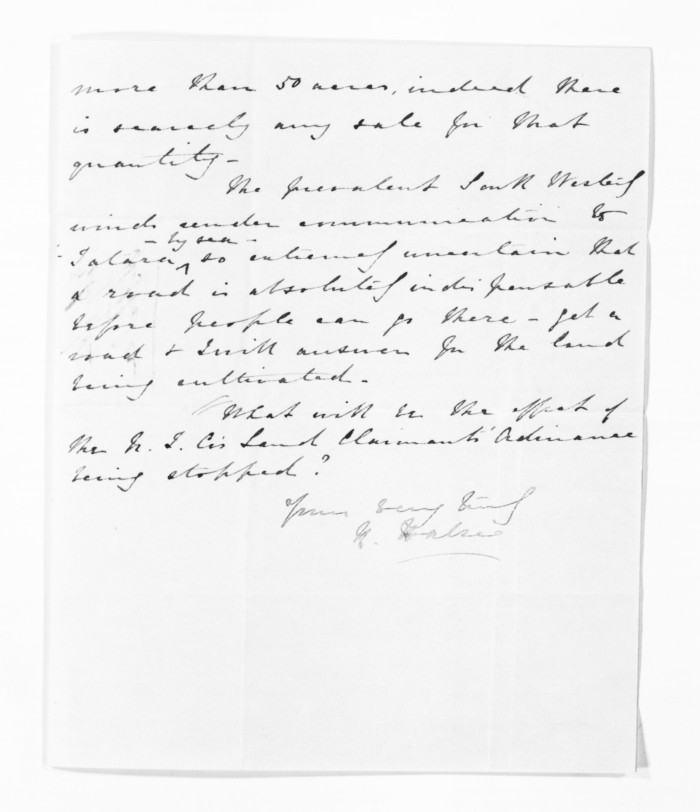 more than 50 acres, indeed there
is scarcely any sale for that
quantity -
The prevalent South Westerly
winds render communication to
- by sea -
Tatara, so extremely uncertain that
a road is absolutely indispensable
before people can go there - get a
road & I will answer for the land
being cultivated.
What will be the effect of
the N. Z. Co's Land Claimants' Ordinance
being stopped?
Yours very truly
H. Halse